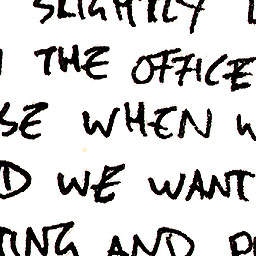 SLIGHTLY
THE OFFICE
SE WHEN W
D WE WANT
TING AND